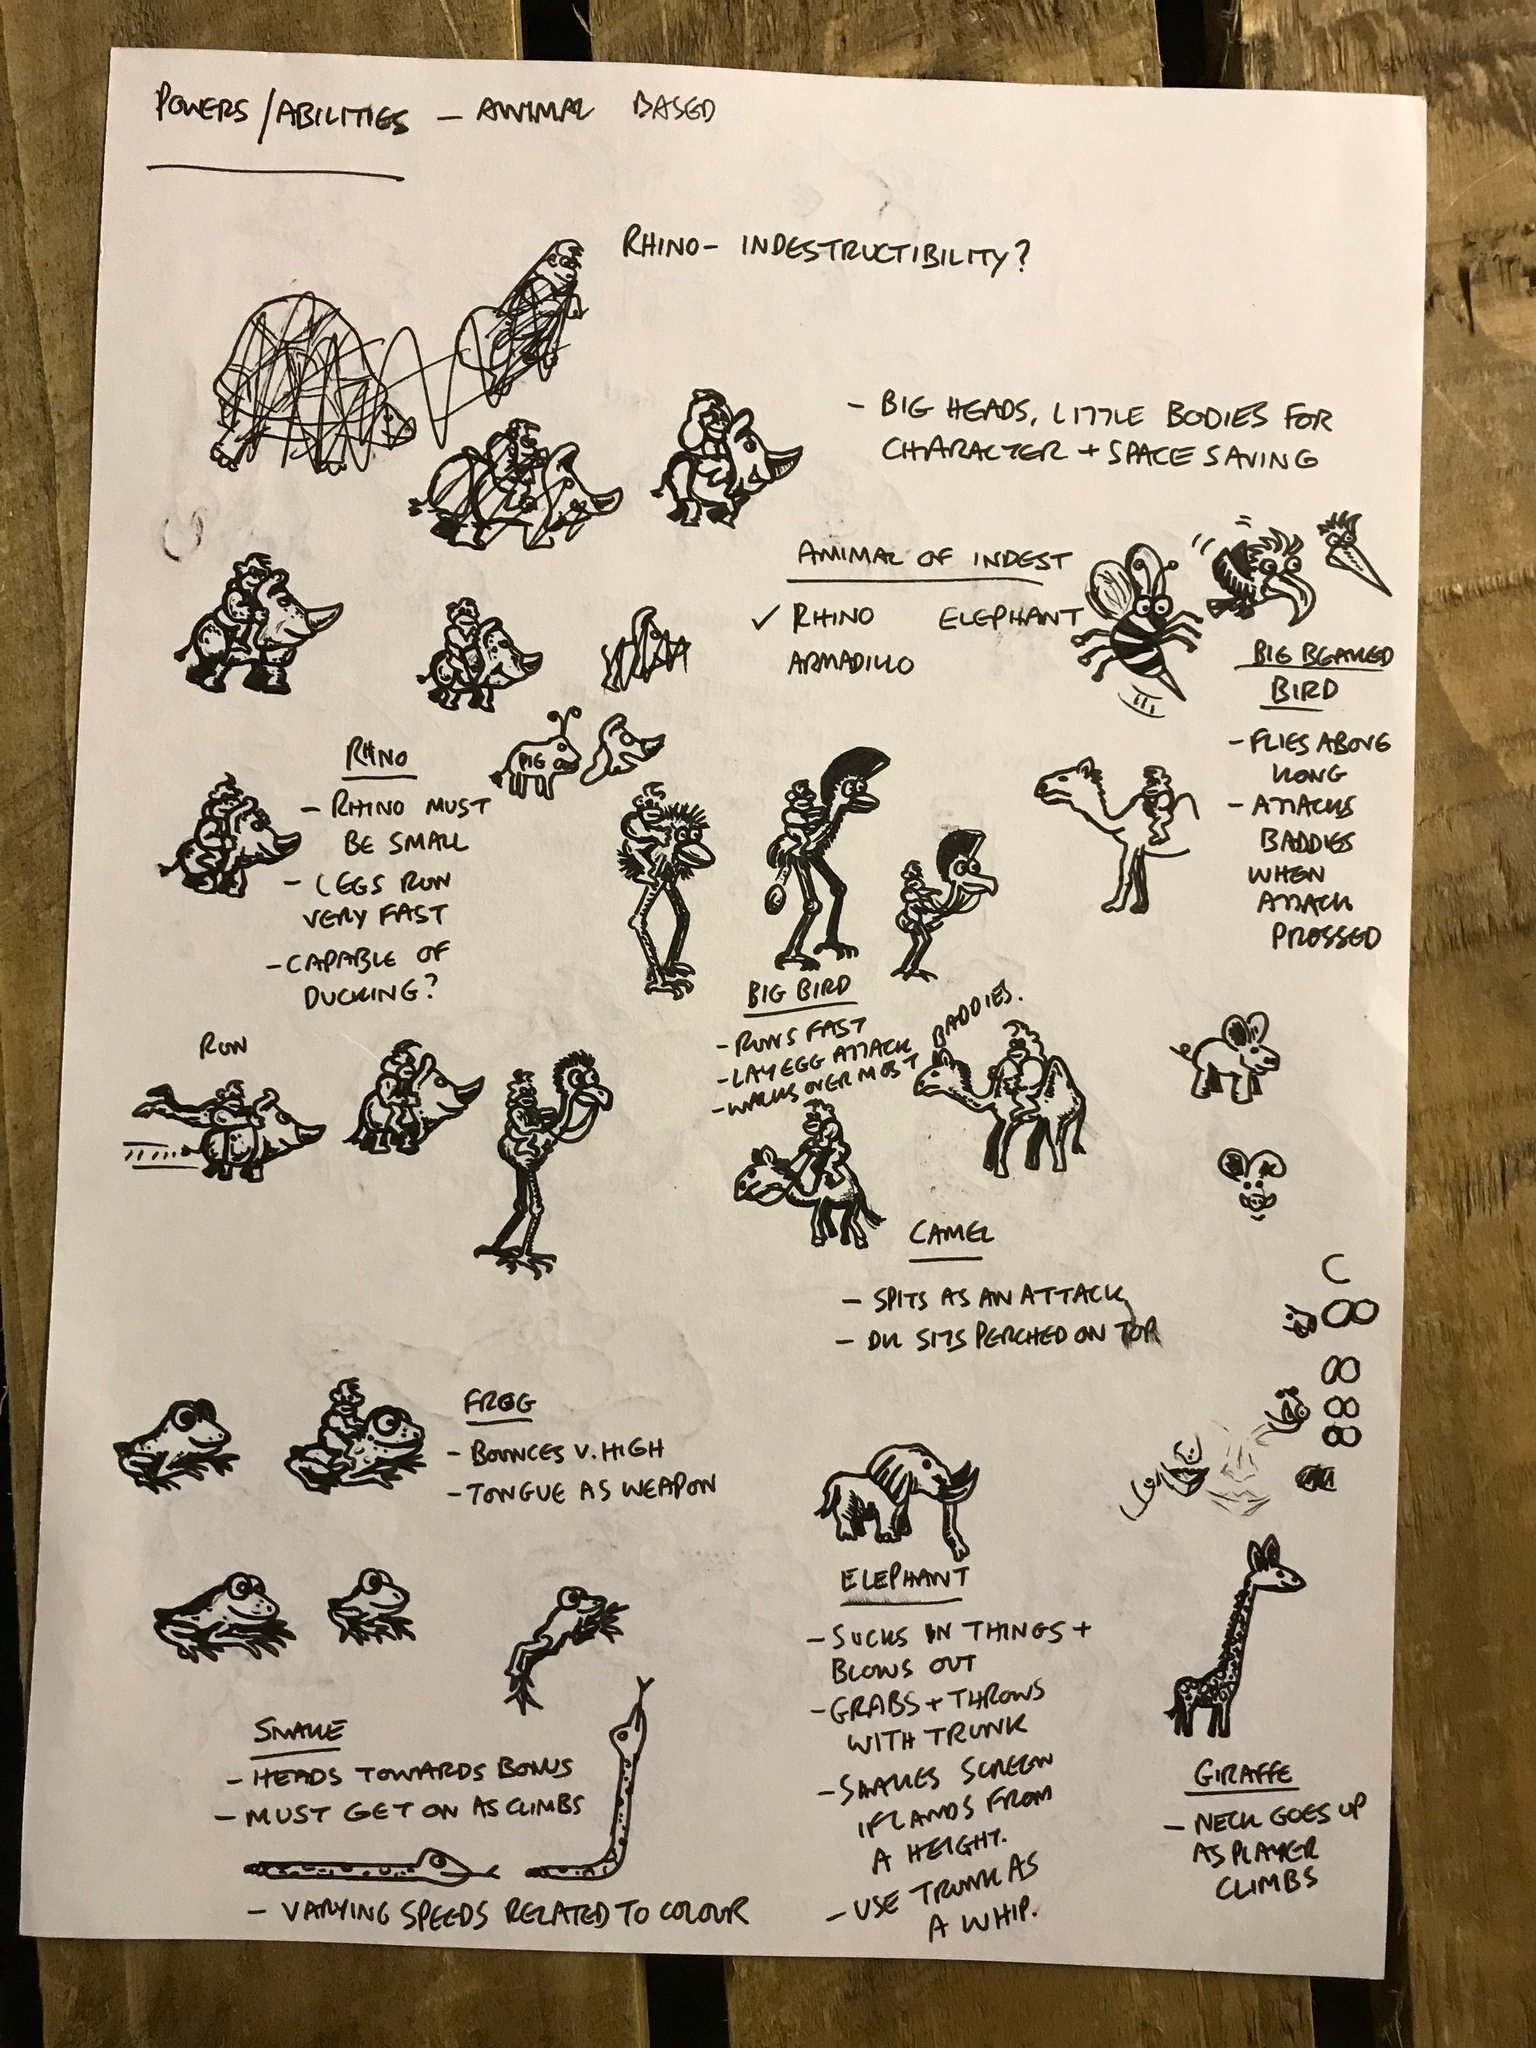 POWERS/ABILITIES - ANIMAL BASED
RHINO- INDESTRUCTIBILITY?
- BIG HEADS, LITTLE BODIES FOR
CHARACTER + SPACE SAVING
ANIMAL OF INDEST
✓ RHINO ELEPHANT
ARMADILLO
BIG BEAKED
BIRD
- FLIES ABOVE
KONG
- ATTACKS
BADDIES
WHEN
ATTACK
PRESSED
RHINO
- RHINO MUST
BE SMALL
- LEGS RUN
VERY FAST
- CAPABLE OF
DUCKING?
PIG
RUN
BIG BIRD
- RUNS FAST
- LAY EGG ATTACK
- WALKS OVER MOST
BADDIES.
CAMEL
- SPITS AS AN ATTACK
- DK SITS PERCHED ON TOP
FROG
- BOUNCES V. HIGH
- TONGUE AS WEAPON
ELEPHANT
- SUCKS IN THINGS +
BLOWS OUT
- GRABS + THROWS
WITH TRUNK
- SHAKES SCREEN
IF LANDS FROM
A HEIGHT.
- USE TRUNK AS
A WHIP.
SNAKE
- HEADS TOWARDS BONUS
- MUST GET ON AS CLIMBS
- VARYING SPEEDS RELATED TO COLOUR
GIRAFFE
- NECK GOES UP
AS PLAYER
CLIMBS